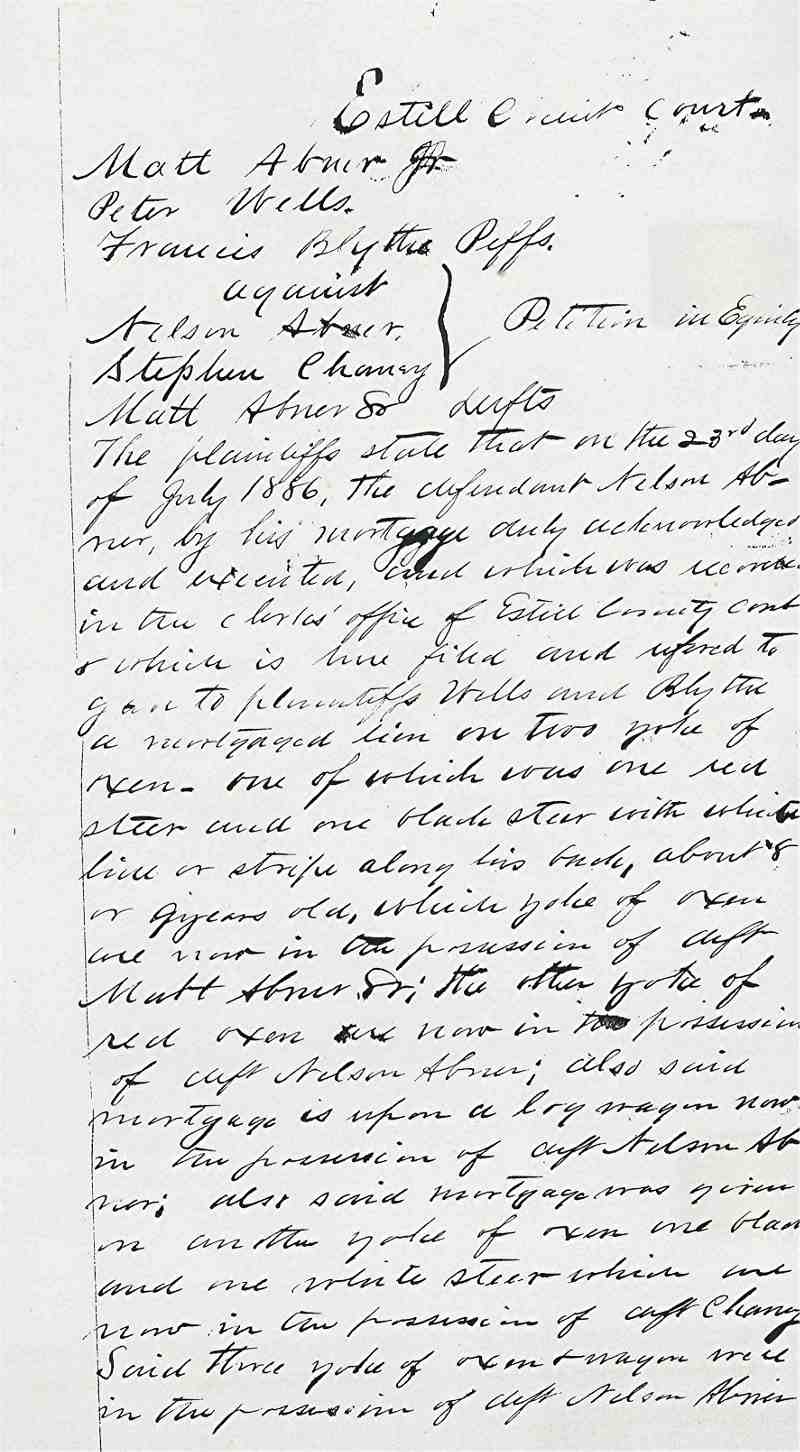 Estill Circuit Court
Matt Abner Jr
Peter Wells.
Francis Blythe Peffs.
against
Nelson Abner.
Stephen Chaney
Petition in Equity
Matt Abner Sr defts
The plaintiffs state that on the 23rd day
of July 1886, the defendant Nelson Ab-
ner, by his mortgage duly acknowledged
and executed, and which was
in the clerks' office of Estill County Court
& which is here filed and refered to
gave to plaintiffs Wells and Blythe
a mortgaged lien on two yoke of
oxen - one of which was one red
steer and one black steer with white
line or stripe along his back, about 8
or 9 years old, which yoke of oxen
are now in the possession of deft
Matt Abner Sr; the other yoke of
red oxen are now in the possession
of deft Nelson Abner; also said
mortgage is upon a log wagon now
in the possession of deft Nelson Ab
ner; also said mortgage was given
on another yoke of oxen one black
and one white steer which are
now in the possession of deft Chaney
Said three yoke of oxen & wagon were
in the possession of deft Nelson Abner